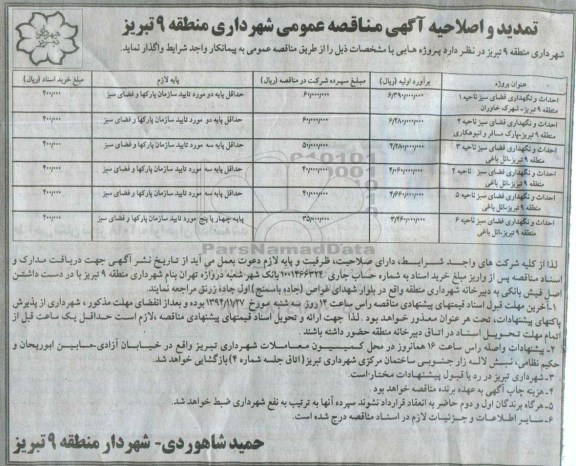 تمدید و اصلاحیه آگهی مناقصه عمومی شهرداری منطقه ۹ تبریز
شهرداری منطقه ۹ تبریز در نظر دارد پروژه هایی با مشخصات ذیل را از طریق مناقصه عمومی به پیمانکار واجد شرایط واگذار نماید.
عنوان پروژه برآورد اولیه (ریال) مبلغ سپرده شرکت در مناقصه (ریال) پایه لازم مبلغ خرید اسناد (ریال)
احداث و نگهداری فضای سبز ناحیه ۱ منطقه ۹ تبریز-شهرک خاوران حداقل پایه دو مورد تایید سازمان پارکها و فضای سبز ۴۰۰/۰۰۰
احداث و نگهداری فضای سبز ناحیه ۲ منطقه ۹ تبریز-پارک مسافر و تنوهکاری حداقل پایه دو مورد تایید سازمان پارکها و فضای سبز ۴۰۰/۰۰۰
احداث و نگهداری فضای سبز ناحیه ۳ منطقه ۹ تبریز-ائل باغی حداقل پایه سه مورد تایید سازمان پارکها و فضای سبز ۴۰۰/۰۰۰
احداث و نگهداری فضای سبز ناحیه منطقه ۹ تبریز-ائل باغی حداقل پایه سه مورد تایید سازمان پارکها و فضای سبز ۴۰۰/۰۰۰
احداث و نگهداری فضای سبز ناحیه ۵ منطقه ۹ تبریز-ائل باغی حداقل پایه سه مورد تایید سازمان پارکها و فضای سبز ۴۰۰/۰۰۰
احداث و نگهداری فضای سبز ناحیه ۶ منطقه ۹ تبریز-ائل باغی پایه چهار یا پنج مورد تایید سازمان پارکها و فضای سبز ۴۰۰/۰۰۰
ParsNamadData
لذا از کلیه شرکت های واجد شرایط، دارای صلاحیت، ظرفیت و پایه لازم دعوت بعمل می آید از تاریخ نشر آگهی جهت دریافت مدارک و
اسناد مناقصه پس از واریز مبلغ خرید اسناد به شماره حساب جاری ۱۰۰۱۴۶۶۳۲۴ بانک شهر شعبه دروازه تهران بنام شهرداری منطقه ۹ تبریز با در دست داشتن
اصل فیش بانکی به دبیرخانه شهرداری منطقه واقع در بلوار شهدای غواص (جاده باسمنج) اول جاده زرنق مراجعه نمایند.
۱-آخرین مهلت قبول اسناد قیمتهای پیشنهادی مناقصه راس ساعت ۱۴ روز سه شنبه مورخ ۱۳۹۴/۱/۲۷ بوده و بعد از انقضای مهلت مذکور، شهرداری از پذیرش
پاکتهای پیشنهادات، تحت هر عنوان معذور خواهد بود. لذا جهت ارائه و تحویل اسناد قیمتهای پیشنهادی مناقصه، لازم است حداقل یک ساعت قبل از
اتمام مهلت تحویل اسناد در اتاق دبیرخانه منطقه حضور داشته باشند.
۲-پیشنهادات واصله راس ساعت ۱۶ همانروز در محل کمیسیون معاملات شهرداری تبریز واقع در خیابان آزادی-مابین ابوریحان و
حکیم نظامی، نبش لاله زار جنوبی ساختمان مرکزی شهرداری تبریز (اتاق جلسه شماره ۴) بازگشایی خواهد شد.
۳-شهرداری تبریز در رد یا قبول پیشنهادات مختار است.
۴-هزینه چاپ آگهی به عهده برنده مناقصه خواهد بود.
۵-هرگاه برندگان اول و دوم حاضر به انعقاد قرارداد نشوند سپرده آنها به ترتیب به نفع شهرداری ضبط خواهد شد.
۶-سایر اطلاعات و جزئیات لازم در اسناد مناقصه درج شده است.
حمید شاهوردی- شهردار منطقه ۹ تبریز